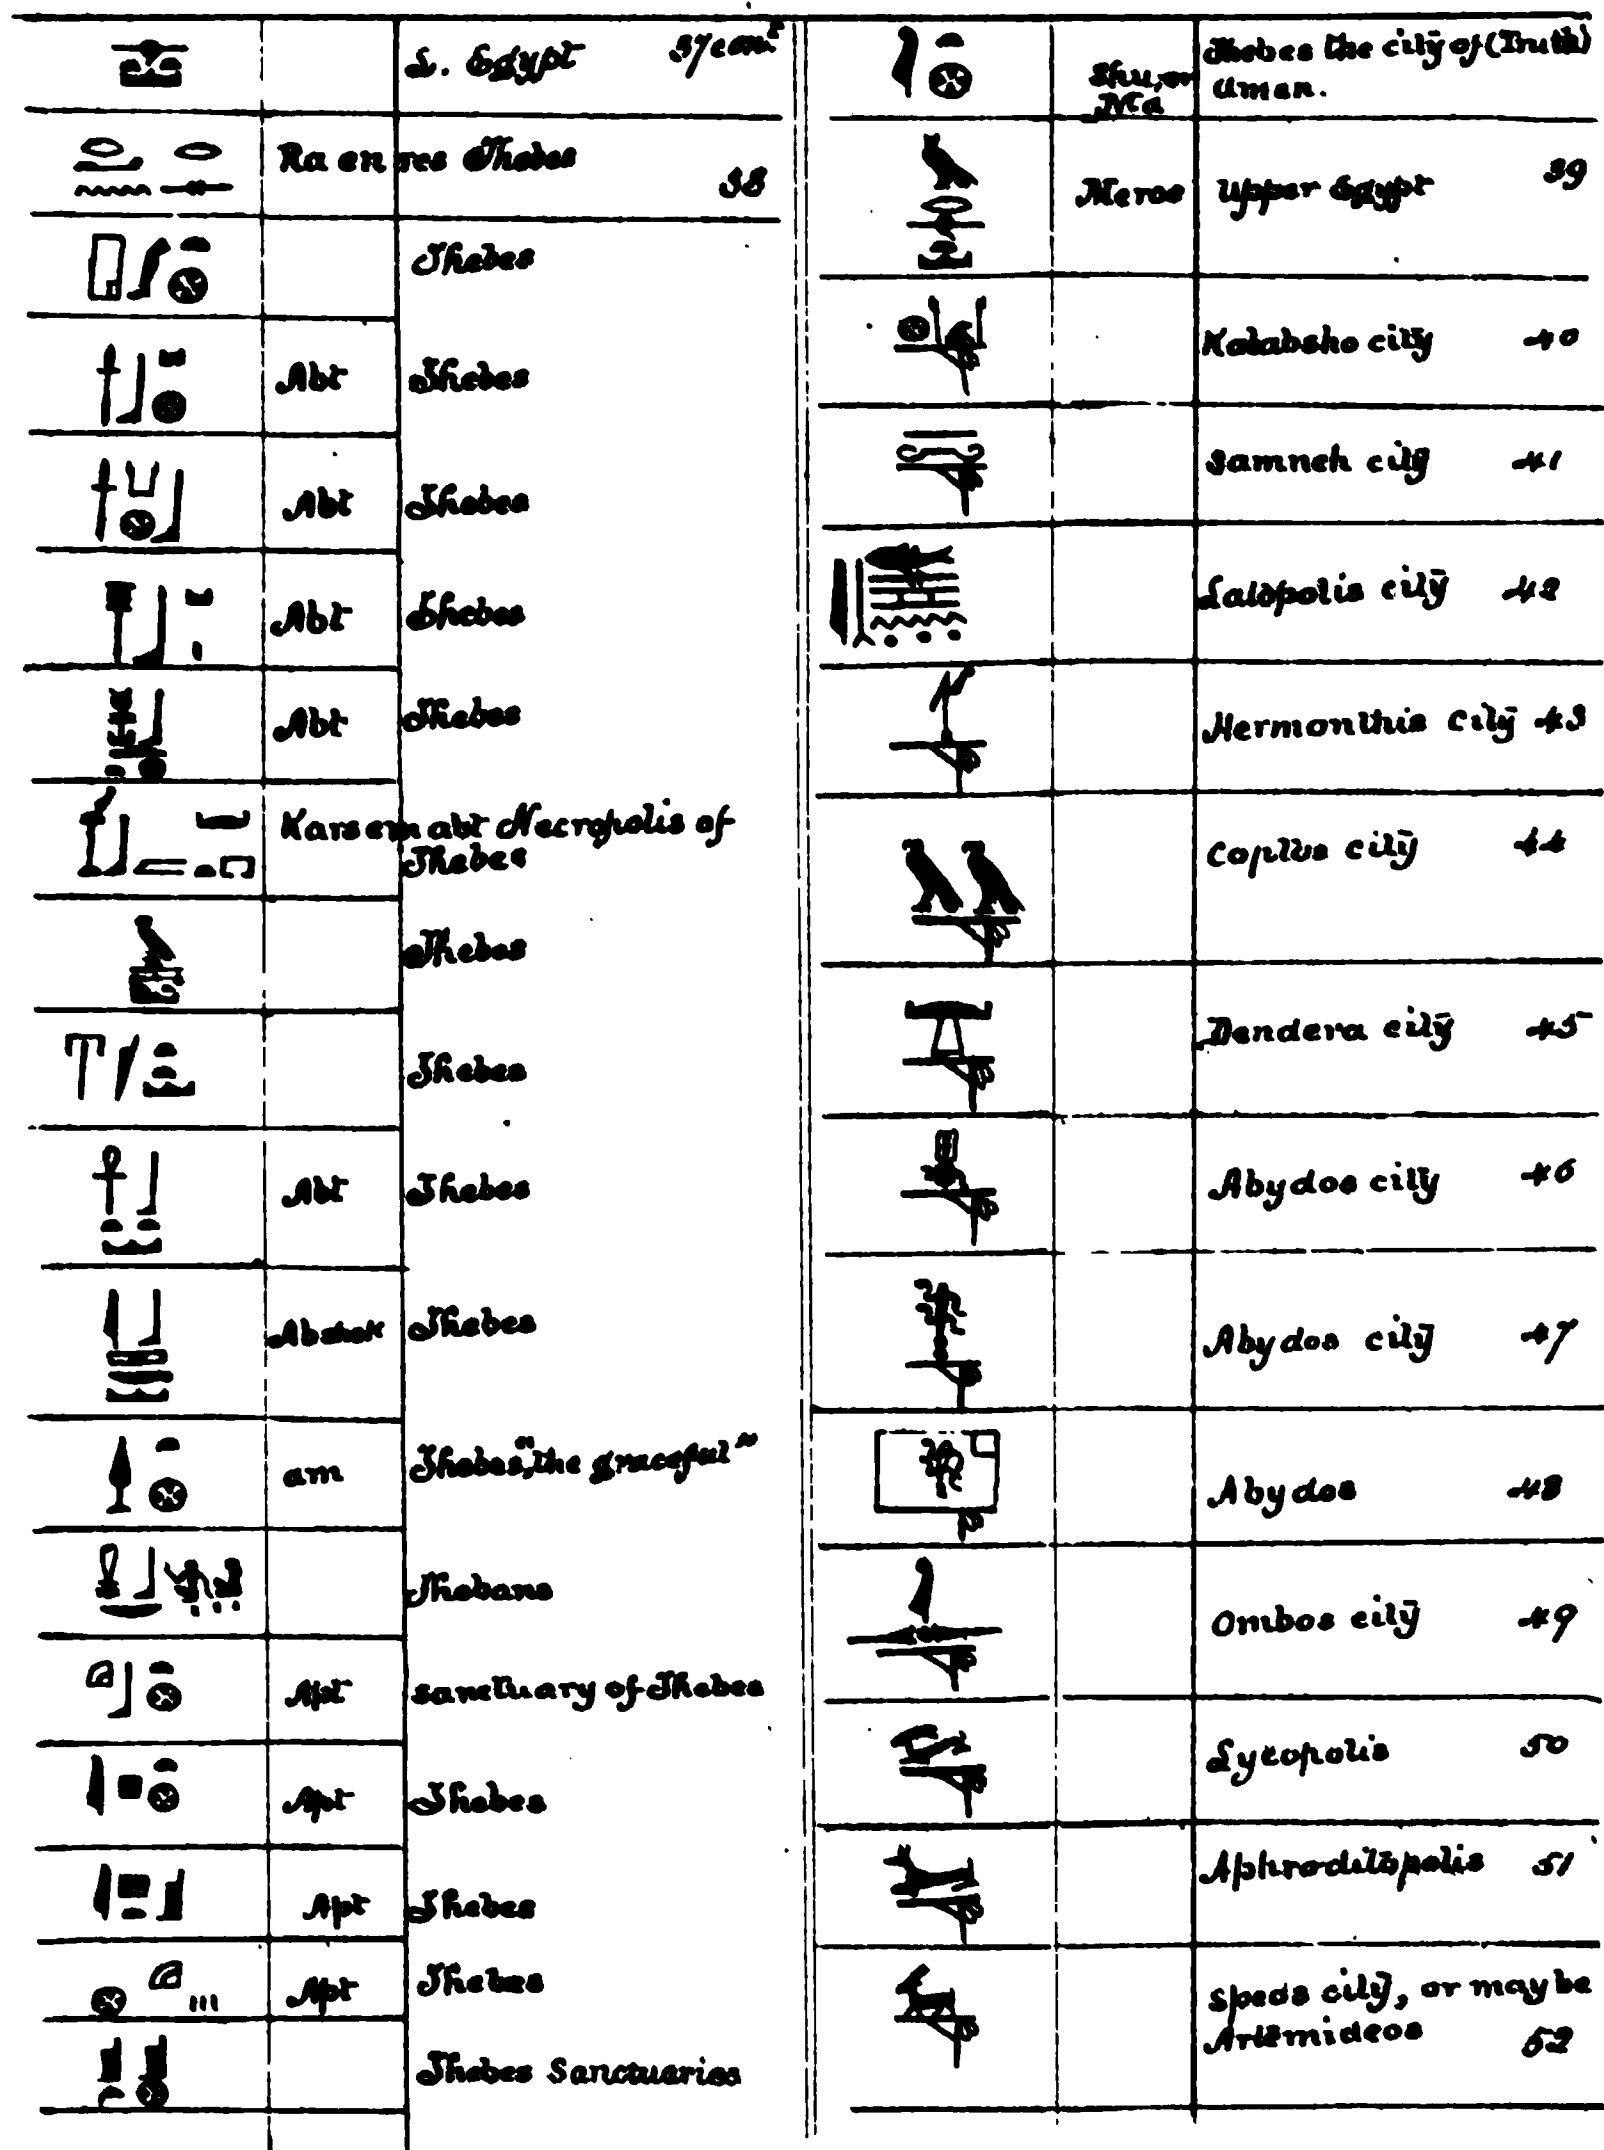 L. Egypt 37 cont
Ra en res Thebes
38
Thebes
Abt Thebes
Abt Thebes
Abt Thebes
Abt Thebes
Kars em abt Necropolis of
Thebes
Thebes
Thebes
Abt Thebes
Thebes
am Thebes, "the graceful"
Thebans
Apt sanctuary of Thebes
Apt Thebes
Apt Thebes
Apt Thebes
Thebes Sanctuaries
Thebes the city of (Truth)
Shu, or Uman.
Ma
Meros Upper Egypt 39
Kalabsho city 40
Samneh city 41
Latopolis city 42
Hermonthis city 43
Coptus city 44
Dendera city 45
Abydos city 46
Abydos city 47
Abydos 48
Ombos city 49
Lycopolis 50
Aphroditopolis 51
Speos city, or may be
Artemideos 52